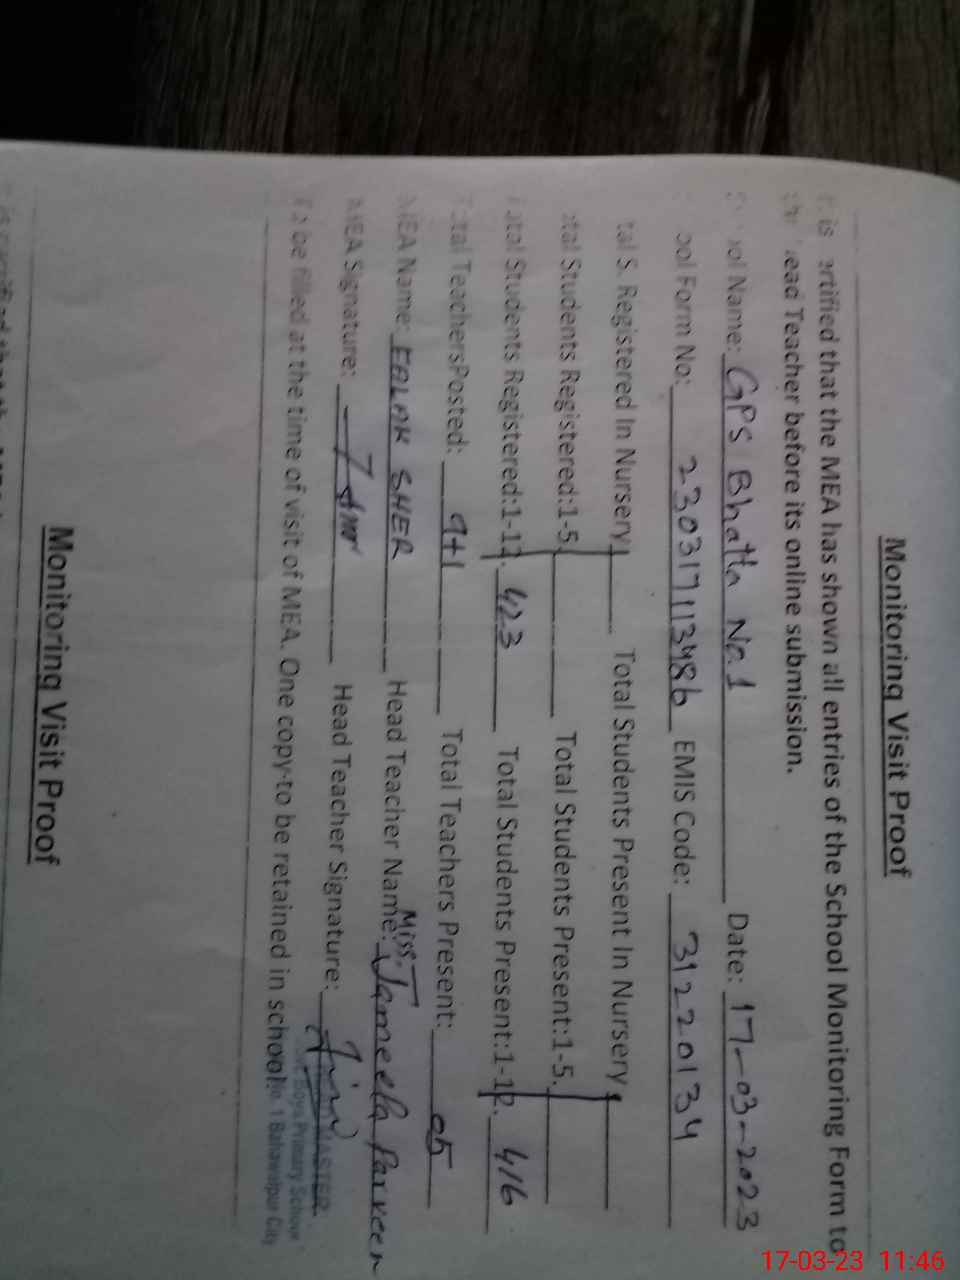 Monitoring Visit Proof
is certified that the MEA has shown all entries of the School Monitoring Form to
Head Teacher before its online submission.
School Name: GPS Bhatta No.1 Date: 17-03-2023
School Form No: 230317113486 EMIS Code: 31220134
Total S. Registered In Nursery Total Students Present In Nursery
Total Students Registered:1-5. Total Students Present:1-5.
Total Students Registered:1-12. 423 Total Students Present:1-12. 416
Total TeachersPosted: 9+1 Total Teachers Present: 05
MEA Name: FALAK SHER Head Teacher Name: Miss. Jameela Parveen
MEA Signature: Head Teacher Signature:
MASTER
Boys Primary School
No. 1 Bahawalpur City
To be filled at the time of visit of MEA. One copy to be retained in school.
Monitoring Visit Proof
17-03-23 11:46